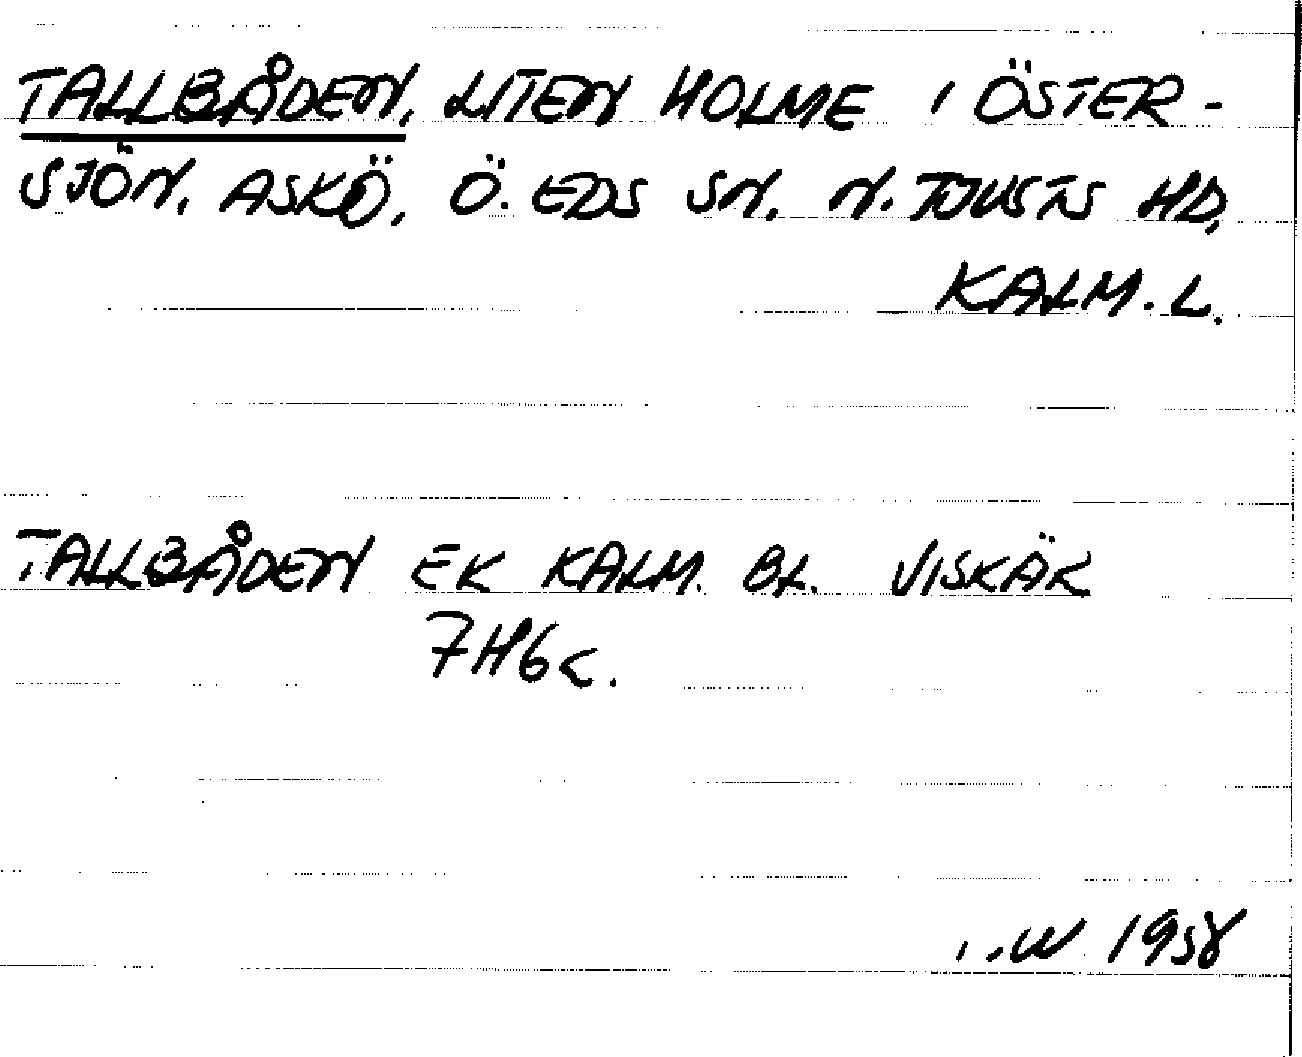 TALLBÅDEN, LITEN HOLME I ÖSTER-
SJÖN, ASKÖ, Ö. EDS SN, N. TJUSTS HD,
KALM. L.
TALLBÅDEN EK KALM. BL. VISKÄR
7H6c.
W 1958